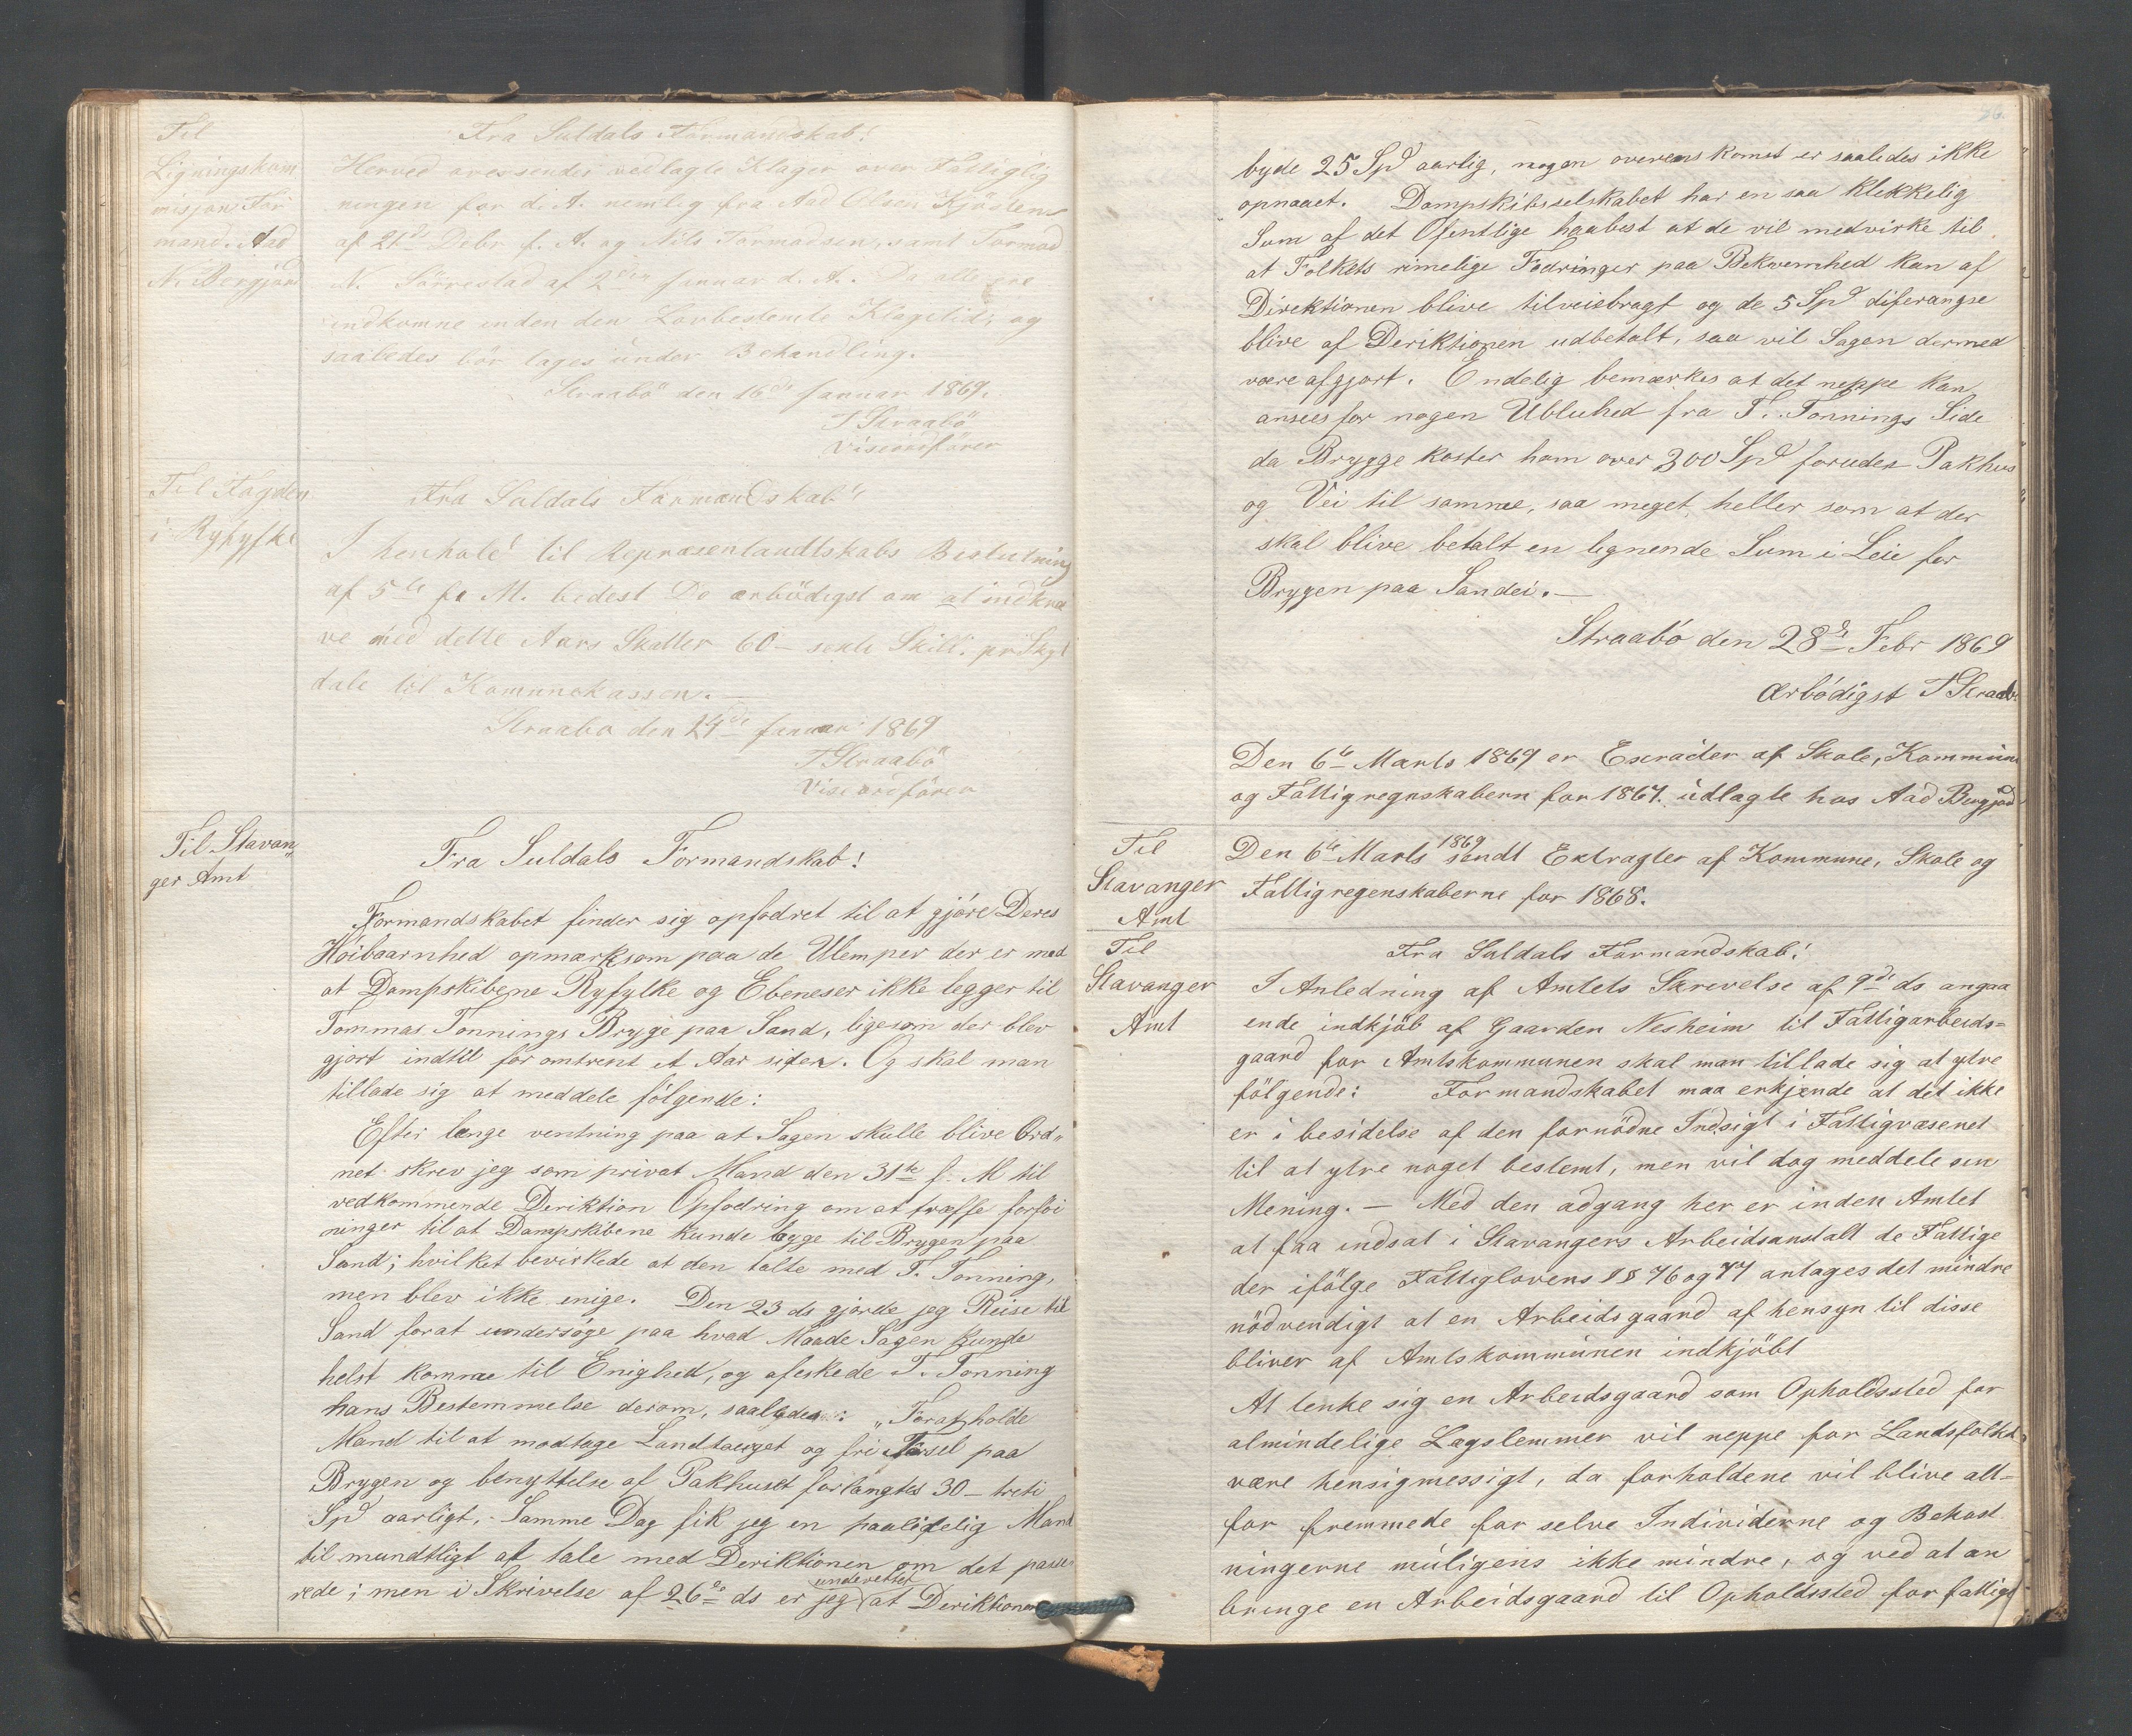 Til
Ligningskom
misjons For
mand. Aad
N. Bergjord
Fra Suldals Formandskab!
Herved oversendes vedlagte Klager over Fattiglig
ningen for d. A. nemlig fra Aad Olsen
af 21de Debr f. A. og Nils Tormodsen, samt Tormod
N. Sørrestad af 2den Januar d. A. Da alle ere
indkomne inden den Lovbestemte Klagetid, og
saaledes bör tages under Behandling.
Straabö den 16de Januar 1869.
T Straabö
Viseordförer
Til Fogden
i Ryfylke
Fra Suldals Formandskab!
I henhold til Repræsentandtskabs Beslutning
af 5te f. M. bedest De ærbödigst om at indkræ
ve med dette Aars Skatter 60 - seksti Skill. pr Sky
dale til Komunekassen. —
Straabö den 24de Januar 1869
T Straabö
Viseordförer
Til Stavan„
ger Amt
Fra Suldals Formandskab!
Formandskabet finder sig opfodret til at gjöre Deres
Höibaarnhed opmærksom paa de Ulemper der er med
at Dampskibene Ryfylke og Ebeneser ikke legger til
Tommas Tonnings Brygge paa Sand, ligesom der blev
gjort indtil for omtrent et Aar siden. Og skal man
tillade sig at meddele fölgende:
Efter længe ventning paa at Sagen skulle blive Ord„
net skrev jeg som privat Mand den 31te f. M til
vedkommende Deriktion Opfodring om at træffe forföi
ninger til at Dampskibene kunde legge til Brygen paa
Sand; hvilket bevirkede at den talte med T. Tonning,
men blev ikke enige. Den 23 ds gjorde jeg Reise til
Sand forat undersöge paa hvad Maade Sagen kunde
helst komme til Enighed, og afeskede T. Tonning
hans Bestemmelse derom, saaledes: „Forat holde
Mand til at modtage Landtauget og fri Försel paa
Brygen og benyttelse af Pakhuset forlangtes 30 - treti
Spd aarligt. Samme Dag fik jeg en paalidelig Mand
til mundtligt at tale med Deriktionen om det passe
rede; men i Skrivelse af 26de ds er jeg underettet at Deriktionen
36.
byde 25 Spd aarlig, nogen overenskomst er saaledes ikke
opnaaet. Dampskibsselskabet har en saa klekkelig
Sum af det Ofentlige haabest at de vil medvirke til
at Folkets rimelige Fodringer paa Bekvemhed kan af
Direktionen blive tilveiebragt og de 5 Spd diferangse
blive af Deriktionen udbetalt, saa vil Sagen dermed
være afgjort. Endelig bemærkes at det neppe kan
ansees for nogen Ubluhed fra T. Tonnings Side
da Brygge koster ham over 300 Spd foruden Pakhus
og Vei til samme, saa meget heller som at der
skal blive betalt en lignende Sum i Leie for
Brygen paa Sandei. —
Straabö den 28de Febr 1869
Ærbödigst T Straabö
Den 6te Marts 1869 er Exrader af Skole, Kommune
og Fattigregnskabern for 1867. udlagte hos Aad Bergjord
Til
Stavanger
Amt
Den 6te Marts 1869 sendt Extragter af Kommune, Skole og
Fattigregenskaberne for 1868.
Til
Stavanger
Amt
Fra Suldals Formandskab!
I Anledning af Amtets Skrivelse af 9de ds angaa
ende indkjöb af Gaarden Nesheim til Fattigarbeids=
gaard for Amtskommunen skal man tillade sig at ytre
fölgende: Formandskabet maa erkjende at det ikke
er i besidelse af den fornödne Indsigt i Fattigvæsenet
til at ytre noget bestemt, men vil dog meddele sin
Mening. — Med den adgang her er inden Amtet
at faa indsat i Stavangers Arbeidsanstalt de Fattige
der ifölge Fattiglovens §§ 76 og 77 antages det mindre
nödvendigt at en Arbeidsgaard af hensyn til disse
bliver af Amtskommunen indkjöbt
At tenke sig en Arbeidsgaard som Opholdssted for
almindelige Lagslemmer vil neppe for Landsfolket
være hensigmessigt, da forholdene vil blive alt=
for fremmede for selve Individerne og Bekost
ningerne muligens ikke mindre, og ved at an
bringe en Arbeidsgaard til Opholdssted for fattige